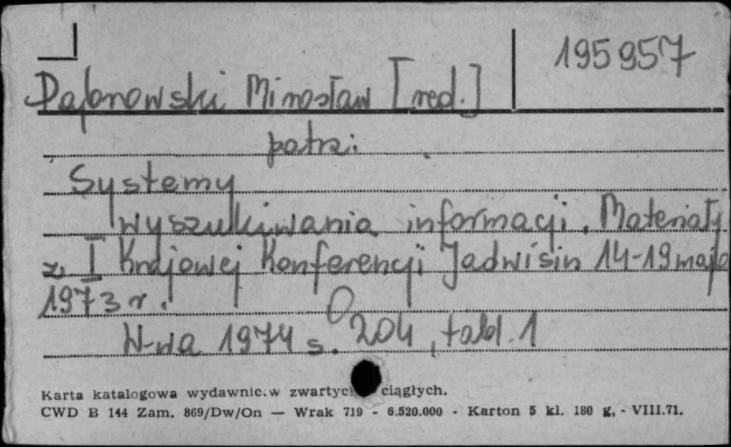 195957
Dąbrowski Mirosław [red.]
patrz:
Systemy
wyszukiwania informacji. Materiały
z I Krajowej Konferencji Jadwisin 14-19 maja
1973 r.
W-wa 1974 s. 204, tabl. 1
Karta katalogowa wydawnic.w zwartyc ciągłych.
CWD B 144 Zam. 869/Dw/On — Wrak 719 - 6.520.000 - Karton 5 kl. 180 g, - VIII.71.